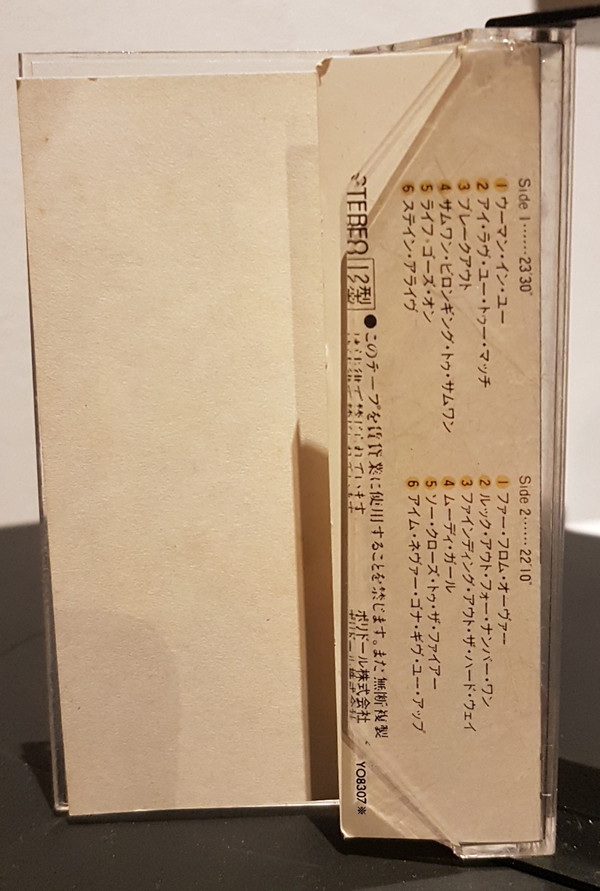 Side 1……23'30"
1 ウーマン・イン・ユー
2 アイ・ラヴ・ユー・トゥー・マッチ
3 ブレークアウト
4 サムワン・ビロンギング・トゥ・サムワン
5 ライフ・ゴーズ・オン
6 ステイン・アライヴ
Side 2……22'10"
1 ファー・フロム・オーヴァー
2 ルック・アウト・フォー・ナンバー・ワン
3 ファインディング・アウト・ザ・ハード・ウェイ
4 ムーディ・ガール
5 ソー・クローズ・トゥ・ザ・ファイアー
6 アイム・ネヴァー・ゴナ・ギヴ・ユー・アップ
STEREO 12型
●このテープを賃貸業に使用することを禁じます。また無断複製
は法律で禁じられています
ポリドール株式会社
YO8307※